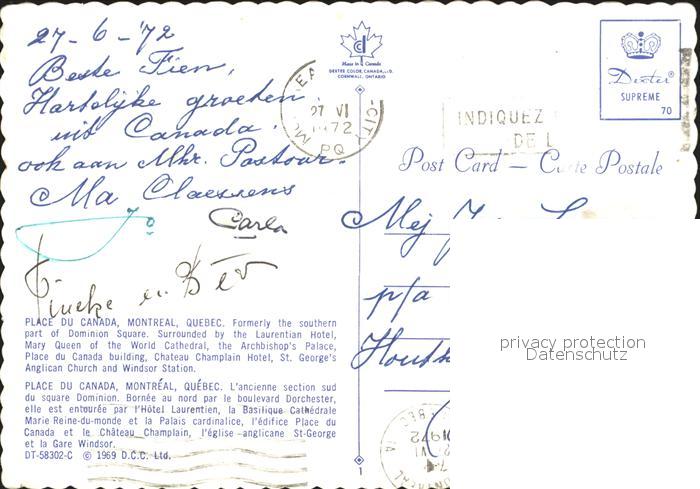 27-6-'72
Beste Fien,
Hartelijke groeten
uit Canada.
ook aan Mhr. Pastour.
Ma Claessens
Jo
Carla
Tineke en Bèr
PLACE DU CANADA, MONTREAL, QUEBEC. Formerly the southern
part of Dominion Square. Surrounded by the Laurentian Hotel,
Mary Queen of the World Cathedral, the Archbishop's Palace,
Place du Canada building, Chateau Champlain Hotel, St. George's
Anglican Church and Windsor Station.
PLACE DU CANADA, MONTRÉAL, QUÉBEC. L'ancienne section sud
du square Dominion. Bornée au nord par le boulevard Dorchester,
elle est entourée par l'Hôtel Laurentien, la Basilique Cathédrale
Marie Reine-du-monde et la Palais cardinalice, l'édifice Place du
Canada et le Château Champlain, l'église anglicane St-George
et la Gare Windsor.
DT-58302-C © 1969 D.C.C. Ltd.
Made in Canada
DEXTER COLOR CANADA LTD.
CORNWALL, ONTARIO
27 VI
1972
PQ
INDIQUEZ
DE L
Dexter®
SUPREME
70
Post Card — Carte Postale
Mej
p/a
privacy protection
Datenschutz
1972
1